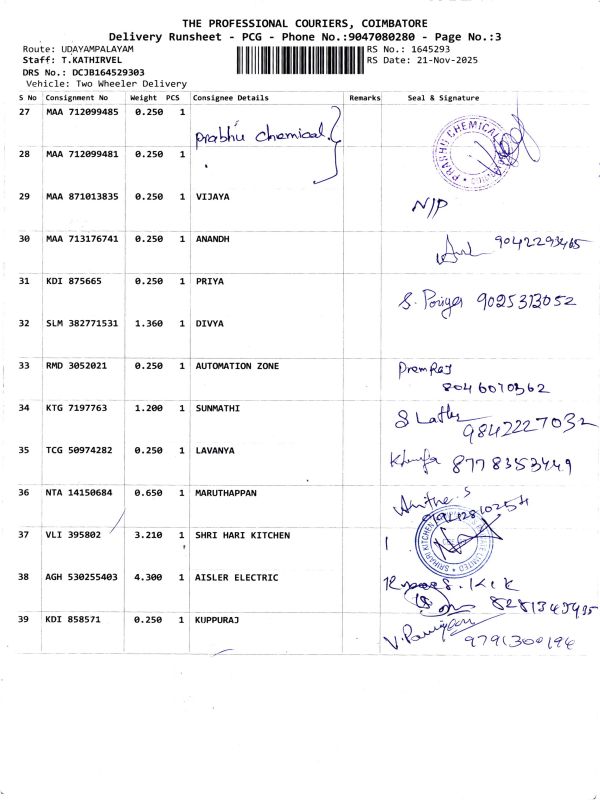 THE PROFESSIONAL COURIERS, COIMBATORE
Delivery Runsheet - PCG - Phone No.:9047080280 - Page No.:3
Route: UDAYAMPALAYAM RS No.: 1645293
Staff: T.KATHIRVEL RS Date: 21-Nov-2025
DRS No.: DCJB164529303
Vehicle: Two Wheeler Delivery
S No Consignment No Weight PCS Consignee Details Remarks Seal & Signature
27 MAA 712099485 0.250 1
Prabhu chemical. PRABHU CHEMICAL
28 MAA 712099481 0.250 1
29 MAA 871013835 0.250 1 VIJAYA N/P
30 MAA 713176741 0.250 1 ANANDH 9042293465
31 KDI 875665 0.250 1 PRIYA S. Poriya 9025313052
32 SLM 382771531 1.360 1 DIVYA
33 RMD 3052021 0.250 1 AUTOMATION ZONE PremRaj
8046070362
34 KTG 7197763 1.200 1 SUNMATHI S Latha
9842227032
35 TCG 50974282 0.250 1 LAVANYA 8778353449
36 NTA 14150684 0.650 1 MARUTHAPPAN
37 VLI 395802 3.210 1 SHRI HARI KITCHEN SRIHARI KITCHEN
38 AGH 530255403 4.300 1 AISLER ELECTRIC
8281343495
39 KDI 858571 0.250 1 KUPPURAJ
9791300194